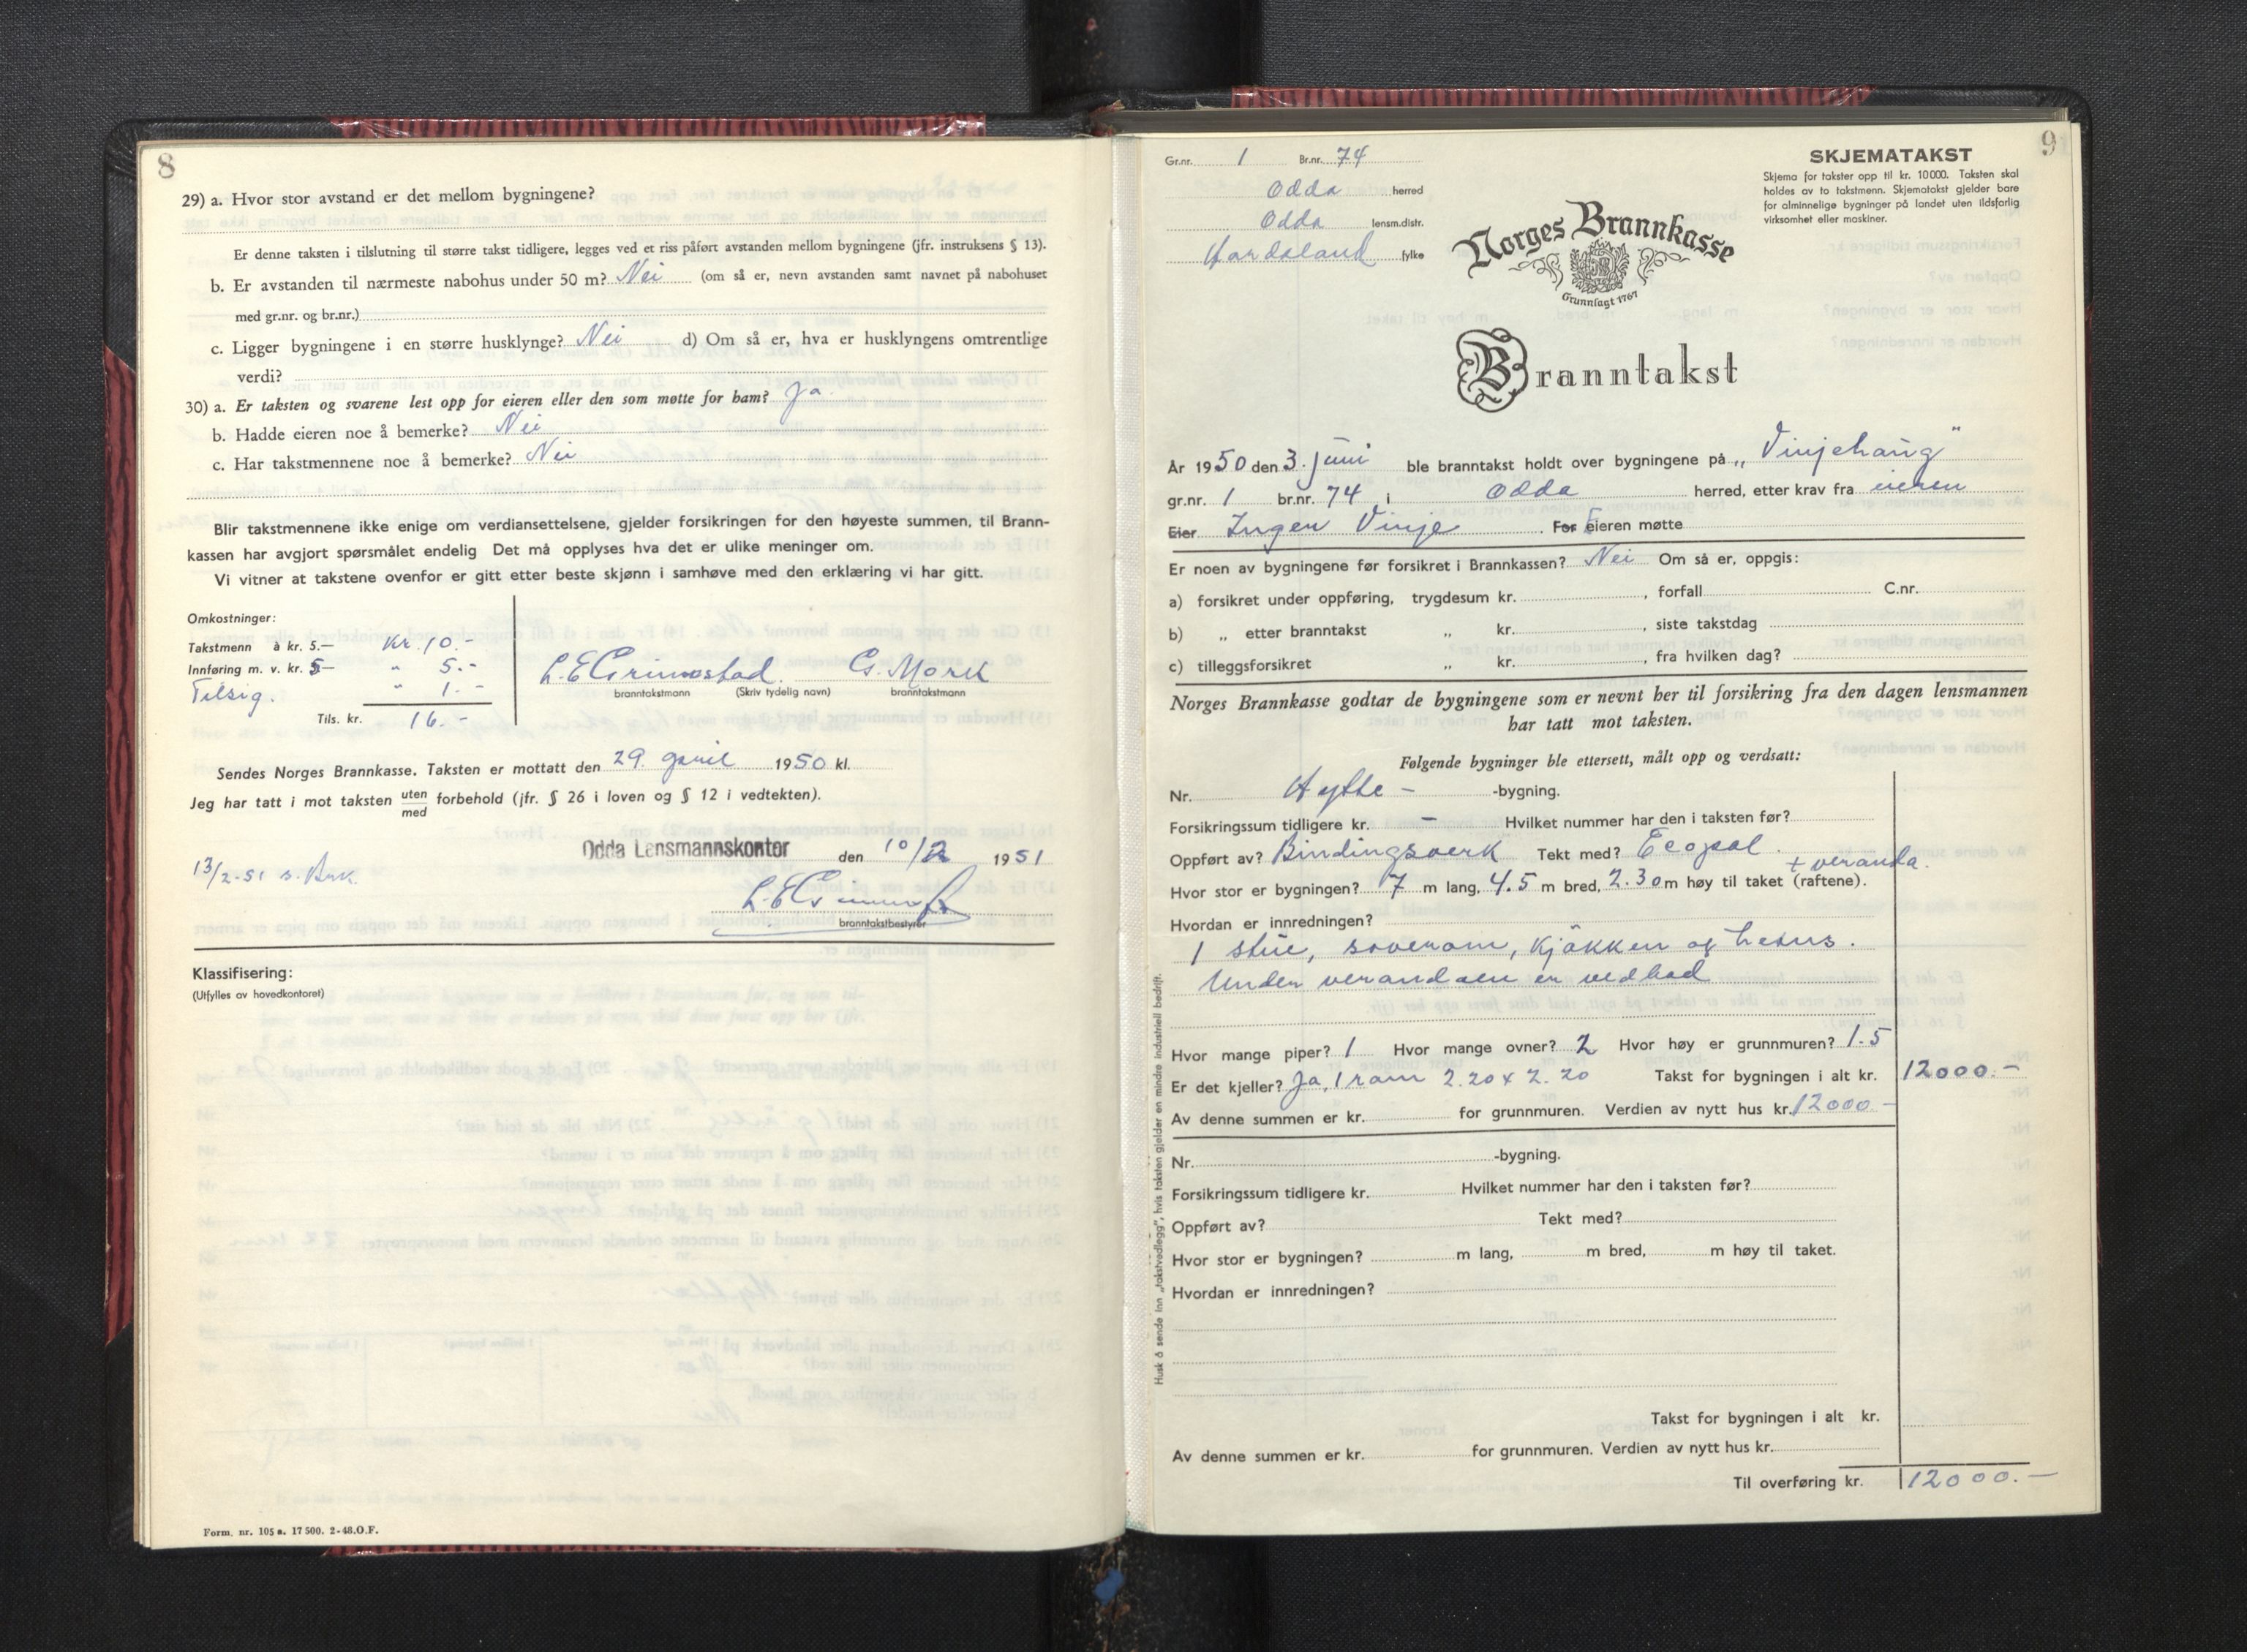 8
29) a. Hvor stor avstand er det mellom bygningene?
Er denne taksten i tilslutning til større takst tidligere, legges ved et riss påført avstanden mellom bygningene (jfr. instruksens § 13).
b. Er avstanden til nærmeste nabohus under 50 m? Nei (om så er, nevn avstanden samt navnet på nabohuset
med gr.nr. og br.nr.)
c. Ligger bygningene i en større husklynge? Nei d) Om så er, hva er husklyngens omtrentlige
verdi?
30) a. Er taksten og svarene lest opp for eieren eller den som møtte for ham? Ja.
b. Hadde eieren noe å bemerke? Nei
c. Har takstmennene noe å bemerke? Nei
Blir takstmennene ikke enige om verdiansettelsene, gjelder forsikringen for den høyeste summen, til Brann-
kassen har avgjort spørsmålet endelig Det må opplyses hva det er ulike meninger om.
Vi vitner at takstene ovenfor er gitt etter beste skjønn i samhøve med den erklæring vi har gitt.
Omkostninger:
Takstmenn à kr. 5.— Kr. 10.-
Innføring m. v. kr. 5— " 5.-
Tilsig. " 1.-
Tils. kr. 16.-
L.E. Grimostad. G. Mork
branntakstmann (Skriv tydelig navn) branntakstmann
Sendes Norges Brannkasse. Taksten er mottatt den 29. april 1950 kl.
Jeg har tatt i mot taksten uten/med forbehold (jfr. § 26 i loven og § 12 i vedtekten).
Odda Lensmannskontor den 10/2 1951
13/2-51 s. Brk.
branntakstbestyrer
Klassifisering:
(Utfylles av hovedkontoret)
Form. nr. 105 a. 17 500. 2-48. O.F.
9
Gr.nr. 1 Br.nr. 74
Odda herred
Odda lensm.distr.
Hordaland fylke
SKJEMATAKST
Skjema for takster opp til kr. 10 000. Taksten skal
holdes av to takstmenn. Skjematakst gjelder bare
for alminnelige bygninger på landet uten ildsfarlig
virksomhet eller maskiner.
Norges Brannkasse
Grunnlagt 1767
Branntakst
År 1950 den 3. juni ble branntakst holdt over bygningene på „Vinjehaug"
gr.nr. 1 br.nr. 74 i Odda herred, etter krav fra eieren
Eier Inger Vinje. For Eieren møtte
Er noen av bygningene før forsikret i Brannkassen? Nei Om så er, oppgis:
a) forsikret under oppføring, trygdesum kr. , forfall C.nr.
b) „ etter branntakst „ kr. , siste takstdag
c) tilleggsforsikret „ kr. , fra hvilken dag?
Norges Brannkasse godtar de bygningene som er nevnt her til forsikring fra den dagen lensmannen
har tatt mot taksten.
Følgende bygninger ble ettersett, målt opp og verdsatt:
Nr. Hytte - -bygning.
Forsikringssum tidligere kr. - Hvilket nummer har den i taksten før?
Oppført av? Bindingsverk Tekt med? Ecopal.
+ veranda.
Hvor stor er bygningen? 7 m lang, 4.5 m bred, 2.30 m høy til taket (raftene).
Hvordan er innredningen?
1 stue, soverom, kjøkken og
Under verandaen er vedbod
Hvor mange piper? 1 Hvor mange ovner? 2 Hvor høy er grunnmuren? 1.5
Er det kjeller? Ja, 1 rom 2.20 x 2.20 Takst for bygningen i alt kr. 12000.-
Av denne summen er kr. for grunnmuren. Verdien av nytt hus kr. 12000.-
Nr. -bygning.
Forsikringssum tidligere kr. Hvilket nummer har den i taksten før?
Oppført av? Tekt med?
Hvor stor er bygningen? m lang, m bred, m høy til taket.
Hvordan er innredningen?
Takst for bygningen i alt kr.
Av denne summen er kr. for grunnmuren. Verdien av nytt hus kr.
Til overføring kr. 12000.-
Husk å sende inn „takstvedlegg", hvis taksten gjelder en mindre industriell bedrift.